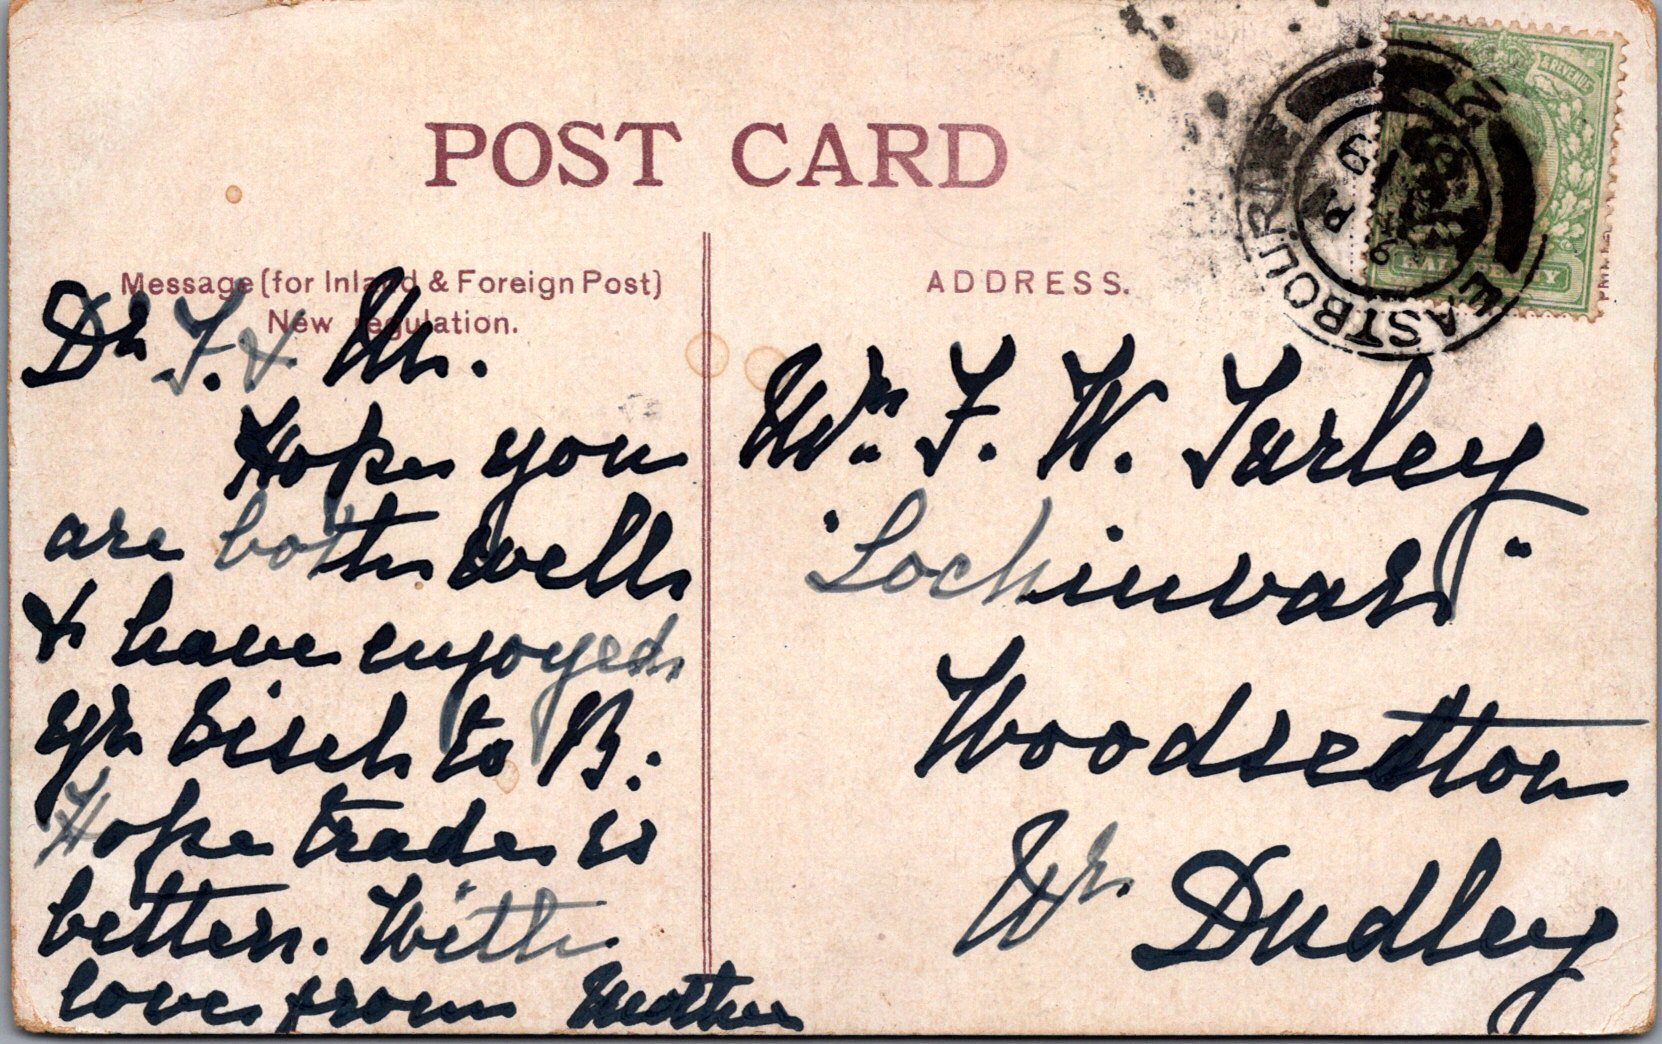 POST CARD
Message (for Inland & Foreign Post)
New regulation.
ADDRESS.
EASTBOURNE
& REVENUE
HALFPENNY
Dr F. & M.
Hope you
are both well
& have enjoyed
yr visit to B.
Hope trade is
better. With
love from Mother
Mr. F. W. Turley
"Lochinvar"
Woodsetton
Nr. Dudley